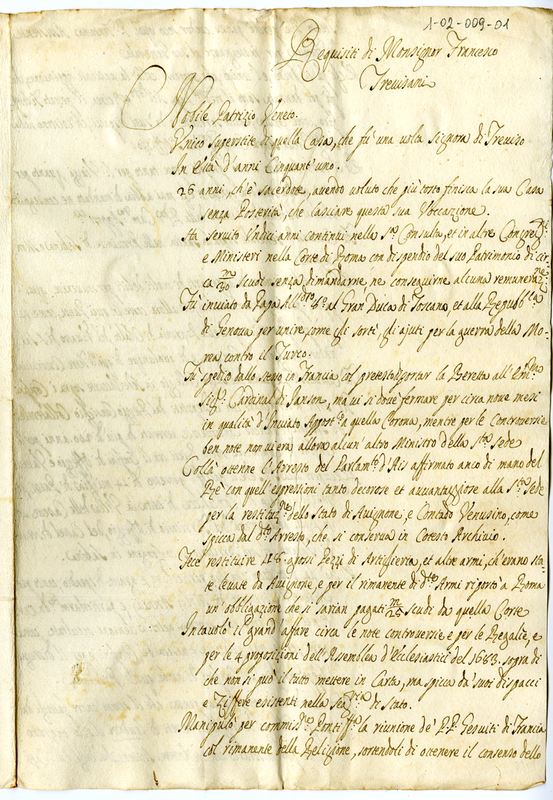 1-02-009-01
Requisiti di Monsignor Francesco
Trevisani
Nobile Patrizio Veneto.
Unico superstite di quella Casa, che fù una volta Signora di Treviso
In età d'anni Cinquant'uno.
26 anni, ch'è sacerdote, avendo voluto che più tosto finisca la sua Casa
senza Posterità, che lasciare questa sua Voccazione.
Ha servito Undici anni continui nella S.ra Consulta, et in altre Congreg.ni
e Ministeri nella Corte di Roma con dispendio del suo Patrimonio di cir-
ca m/30 scudi senza dimandarne, ne conseguirne alcuna remuneraz.ne
Fù inviato da Papa Aless.ro 8.o al Gran Duca di Toscana, et alla Repub.ca
di Genova per unire, come gli sortì, gli ajuti per la guerra della Mo-
rea contro il Turco.
Fù spedito dallo stesso in Francia col pretesto di portar la Beretta all'Em.mo
Sig.r Cardinal di Janson, ma vi si dovè fermare per circa nove mesi
in qualità d'Inviato Appost.o a quella Corona, mentre per le Controversie
ben note non vi era allora alcun'altro Ministro della S.ta Sede
Colà ottenne l'Arresto del Parlam.to d'Ais affirmato anco di mano del
Rè con quell'espressioni tanto decorose et avvantaggiose alla S.ta Sede
per la restituz.ne dello Stato di Avignone, e Contado Venusino, come
spicca dal d.to Arresto, che si conserva in Cotesto Archivio.
Fece restituire 118 grossi Pezzi di Artiglieria, et altre armi, ch'erano sta-
te levate da Avignone, e per il rimanente di d.te Armi riportò a Roma
un'obbligazione che si sarian pagati m/25 scudi da quella Corte
Incavolò il grand'affare circa le note controversie e per le Regalie, e
per le 4 proposizioni dell'Assemblea d'Ecclesiastici del 1683. sopra di
che non si può il tutto mettere in Carta, ma spicca da suoi dispacci
e Ziffere esistenti nella Seg.ria di Stato.
Manipulò per commis.ne Pontif.a la riunione de' P.P. Gesuiti di Francia
col rimanente della Religione, sortendoli di ottenere il consenso dello